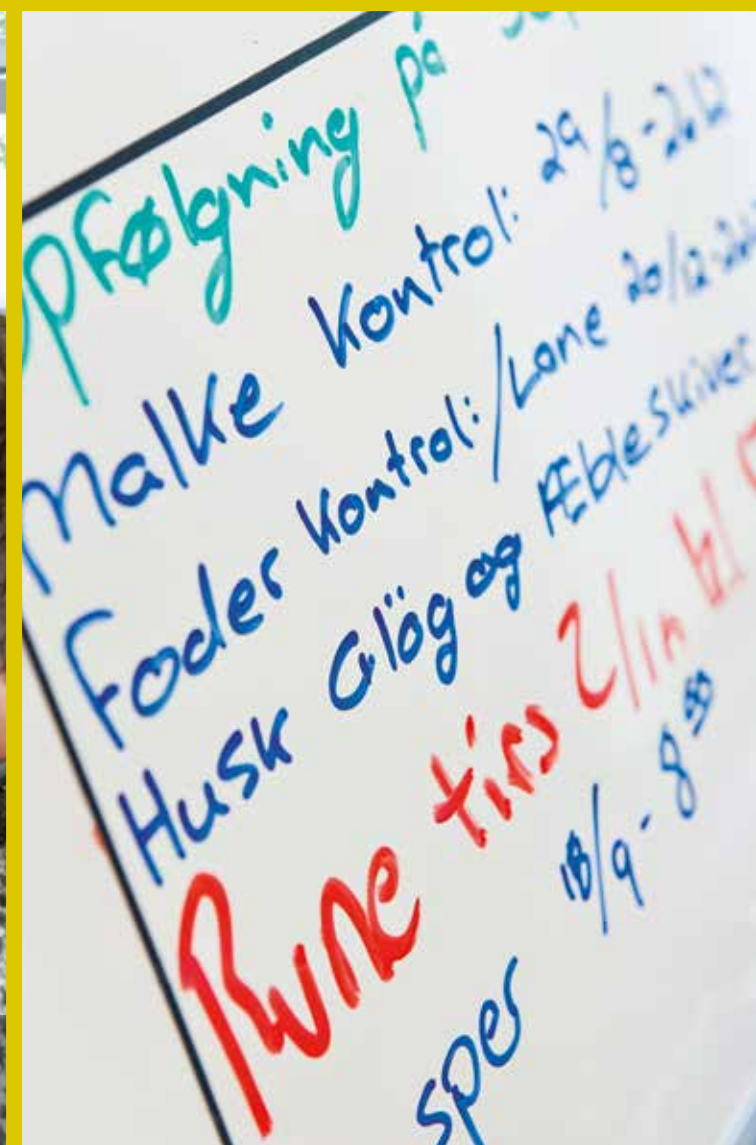 opfølgning på
Malke Kontrol: 29/8-2012
Foder Kontrol:/Lone 20/12-20
Husk Glög og Æbleskiver
Rune tirs 2/
18/9-8
sper